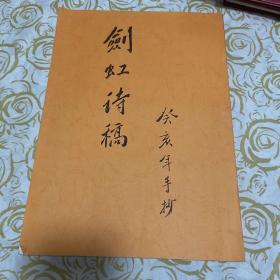 劍虹诗稿
癸亥年手抄